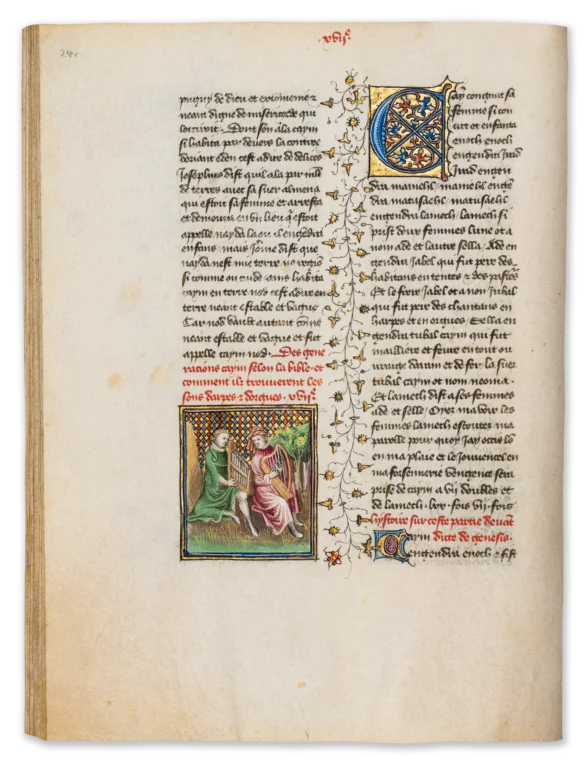 xvij.
puigny de dieu et exiomeniez
neant digne de misericorde qui
locciroit. Dont son ala caym
si habita par devers la contree
doriant eden cest adire de delices
Josephus dist quil ala par mlt
de terres avec sa suer almena
qui estoit sa femme et arresta
et demoura en un lieu qui estoit
appelle nayda la ou il engendra
enfans. mais Jerome dist que
nayda nest mie terre ne regio
si comme ou cuide ains habita
caym en terre nod cest adire en
terre neant estable et vague
Car nod vault autant comme
neant estable et vague et fut
appelle caym nod. Des gene
racions caym selon la bible. et
comment ilz trouverent les
sons darpes et dorgues. xvij.
Caym congnut sa
femme si con
cut et enfanta
enoch enoch
engendra Jrad
Jrad engen
dra mamehl. mamehl enge
dra matusaehl. matusaehl
engendra lamech. lamech si
prist deux femmes lune ot a
nom ade et lautre sella. Ade en
gendra Jabel qui fut pere des
habitans en tentes et des pastes
Et le frere Jabel ot a nom Jubal
qui fut pere des chantans en
harpes et en orgues. Sella en
gendra tubal caym qui fut
maillierre et fevre en tout ou
vraige darain et de fer. la suer
tubal caym ot nom neoma.
Et lamech dist a ses femmes
ade et selle. Oyez ma voix les
femmes lamech escoutez ma
parolle pour quoy Jay occis lo
en ma plaie et le Jouvencel en
ma forsennerie vengence sera
prise de caym a vij doubles et
de lamech. lxx. fois vij. fois
hystoire sur ceste partie devant
Caym dicte de genesis.
engendra enoch et fist